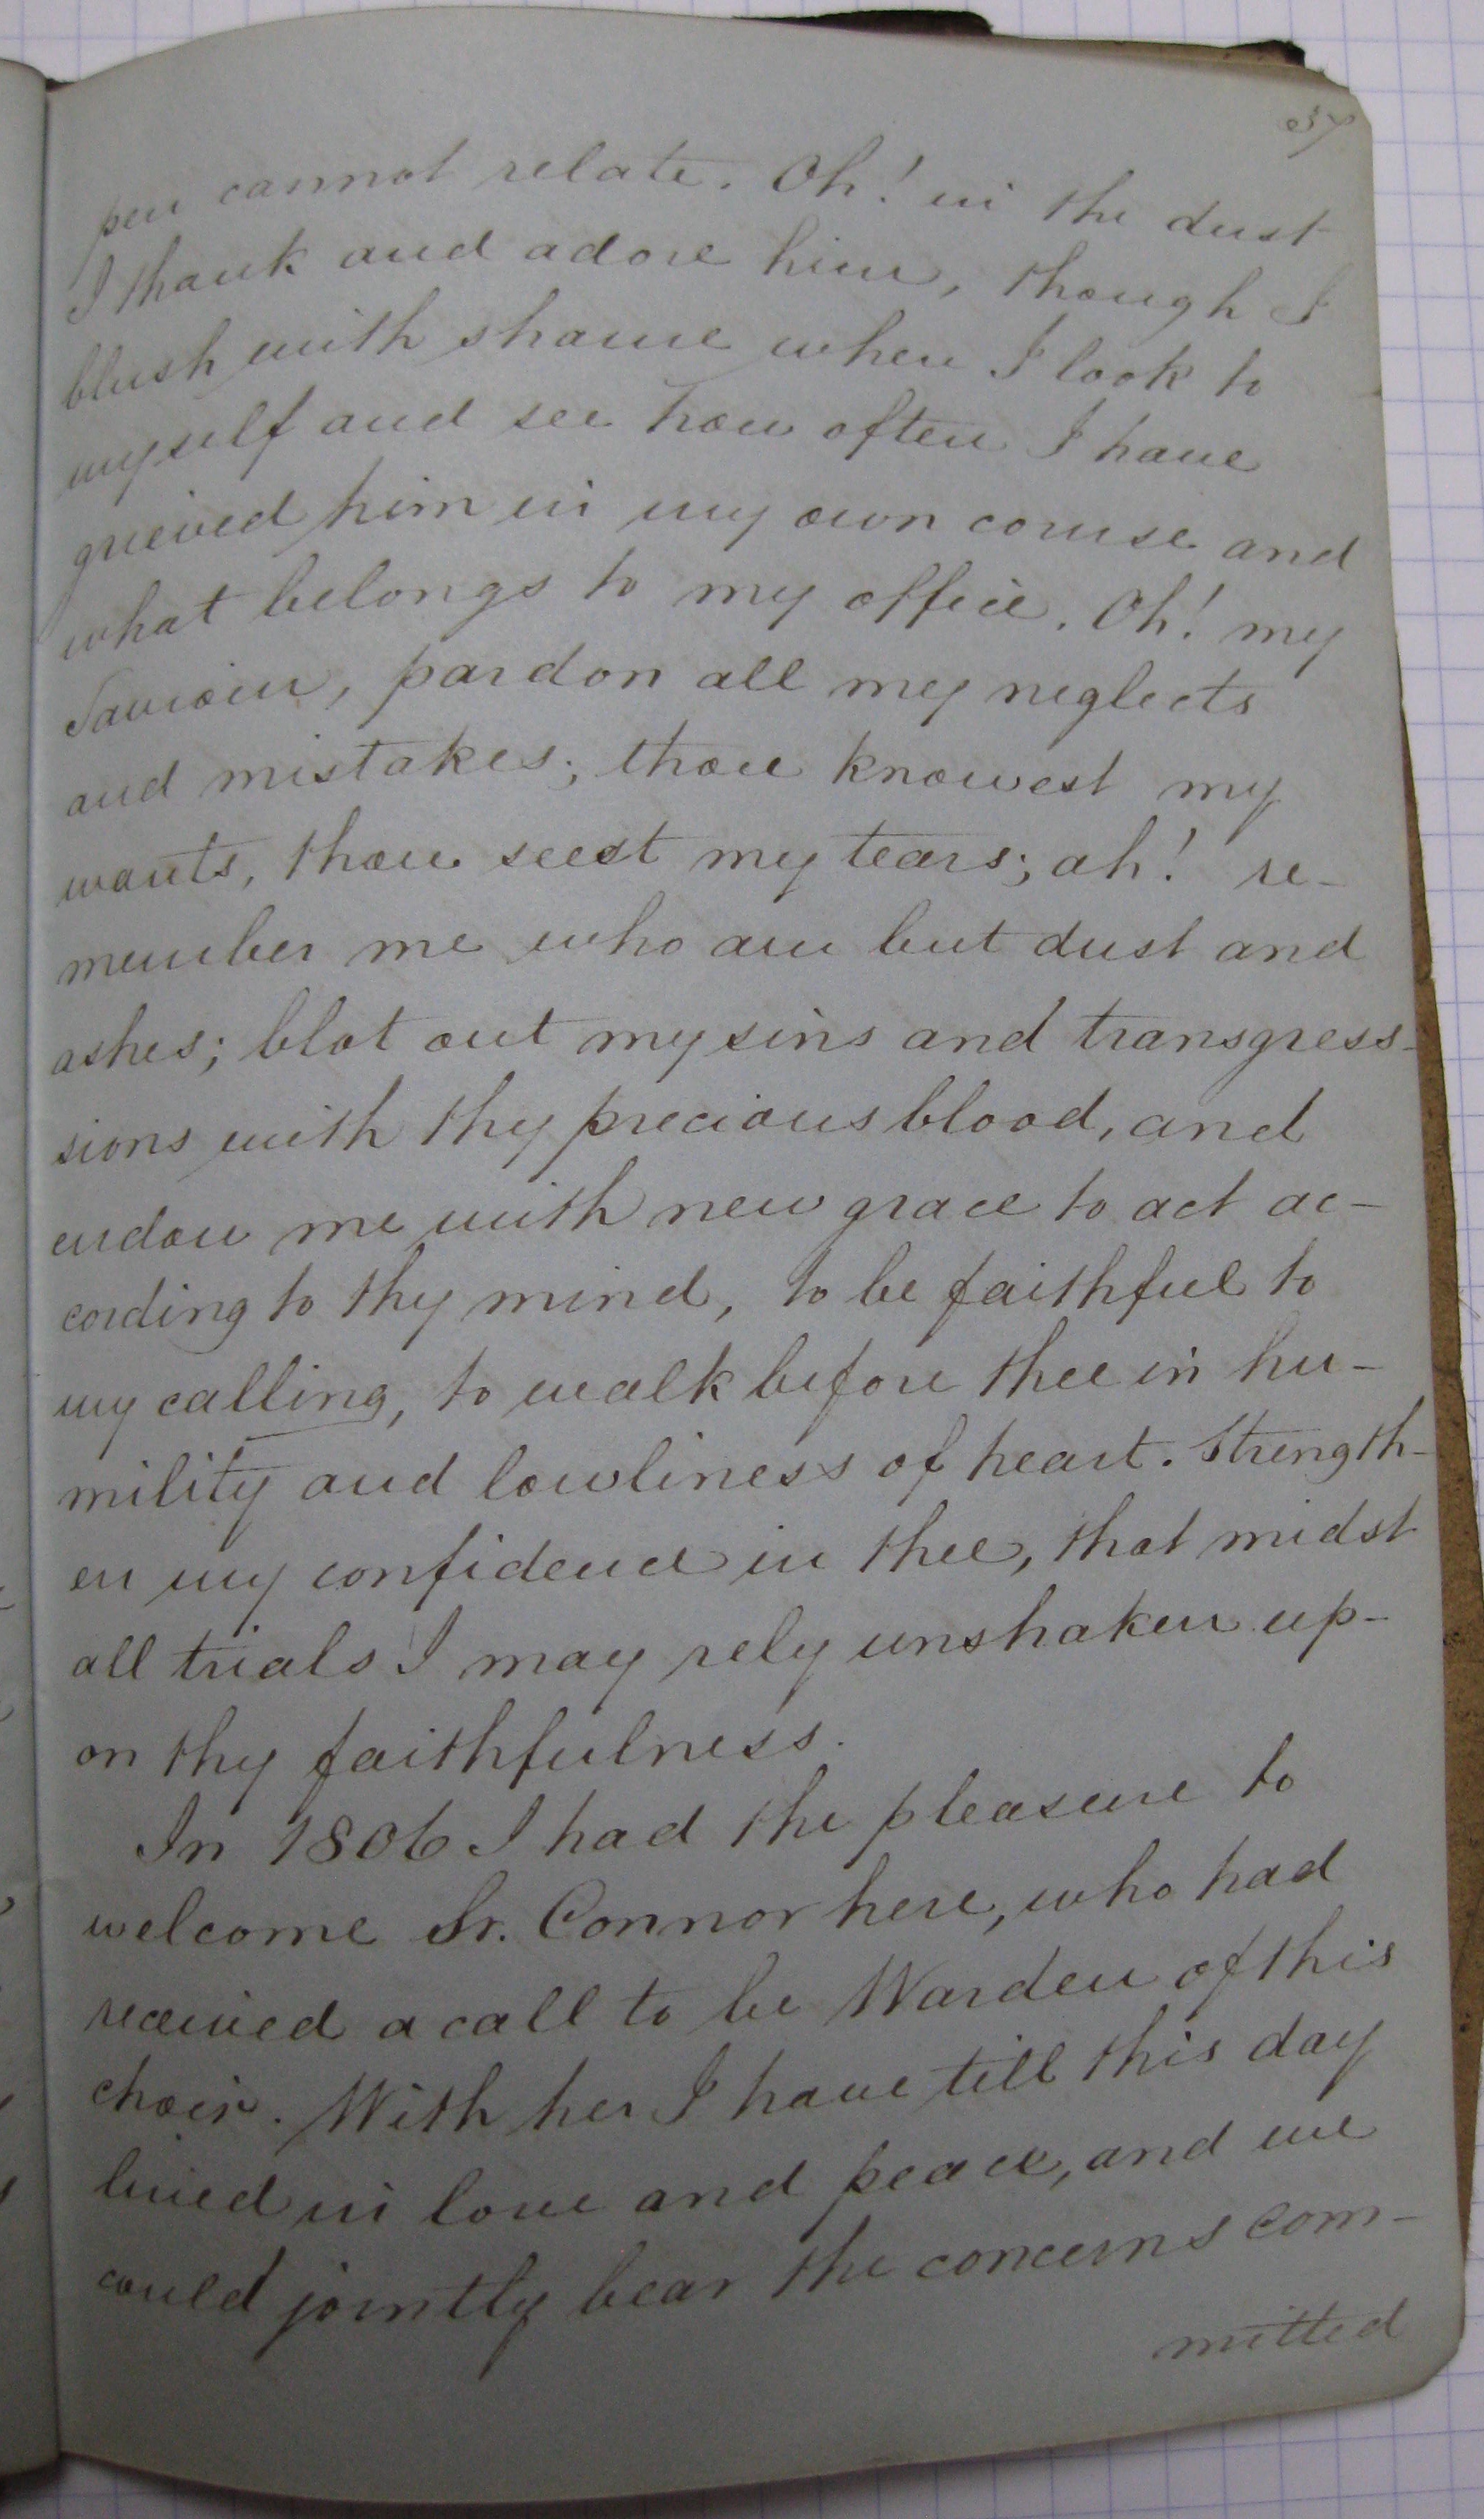 37
pen cannot relate. Oh! in the dust
I thank and adore him, though I
blush with shame when I look to
myself and see how often I have
grieved him in my own course and
what belongs to my office. Oh! my
Saviour, pardon all my neglects
and mistakes; thou knowest my
wants, thou seest my tears; ah! re-
member me who am but dust and
ashes; blot out my sins and transgress-
sions with thy precious blood, and
endow me with new grace to act ac-
cording to thy mind, to be faithful to
my calling, to walk before thee in hu-
mility and lowliness of heart. Strength-
en my confidence in thee, that midst
all trials I may rely unshaken up-
on thy faithfulness.
In 1806 I had the pleasure to
welcome Sr. Connor here, who had
received a call to be Warden of this
choir. With her I have till this day
lived in love and peace, and we
could jointly bear the concerns com-
mitted